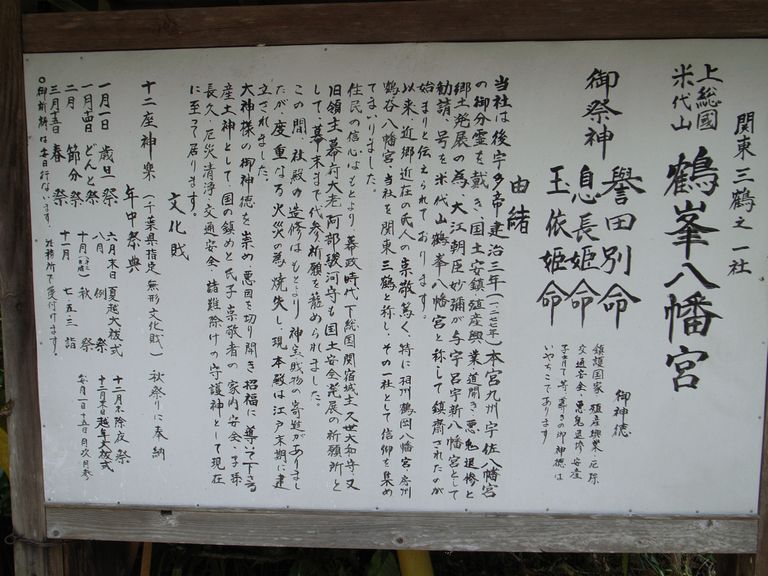 関東三鶴之一社
上総國
米代山
鶴峯八幡宮
御祭神
誉田別命
息長姫命
玉依姫命
御神徳
鎮護国家 殖産興業 厄除
交通安全 悪鬼退修 安産
子育て等、尊きの御神徳は
いやちこであります
由緒
当社は後宇多帝建治三年(一二七七年)本宮九州宇佐八幡宮
の御分霊を戴き、国土安鎮殖産興業道開き悪鬼退修と
郷土発展の為、大江朝臣妙彌が与宇呂宇新八幡宮として
勧請、号を米代山鶴峯八幡宮と称して鎮齋されたのが
始まりと伝えられております。
以来、近郷近在の氏人の崇敬篤く、特に相州鶴岡八幡宮房州
鶴谷八幡宮、当社を関東三鶴と称し、その一社として信仰を集め
てまいりました。
住民の信心はもとより、幕政時代下総国関宿城主久世大和守又
旧領主幕府大老阿部駿河守も国土安全発展の祈願所と
して、幕末まで代参祈願を務められました。
この間、社殿の造修はもとより神宝財物の寄進がありまし
たが、度重なる火災の為焼失し、現本殿は江戸末期に建
立されました。
大神様の御神徳を崇め悪因を切り開き招福に導いて下さる
産土神として、国の鎮めと氏子崇敬者の家内安全、子孫
長久、厄災清浄、交通安全、諸難除けの守護神として現在
に至って居ります。
文化財
十二座神楽(千葉県指定無形文化財) 秋祭りに奉納
年中祭典
一月一日 歳旦祭
一月十四日 どんと祭
二月 節分祭
三月十五日 春祭
六月末日 夏越大祓式
八月 例祭
十月 秋祭
十一月 七・五・三詣
十二月末 除夜祭
十二月末日 越年大祓式
毎月一日十五日 月次月参
〇御祈祷は毎日行ないます、社務所で受付けます。